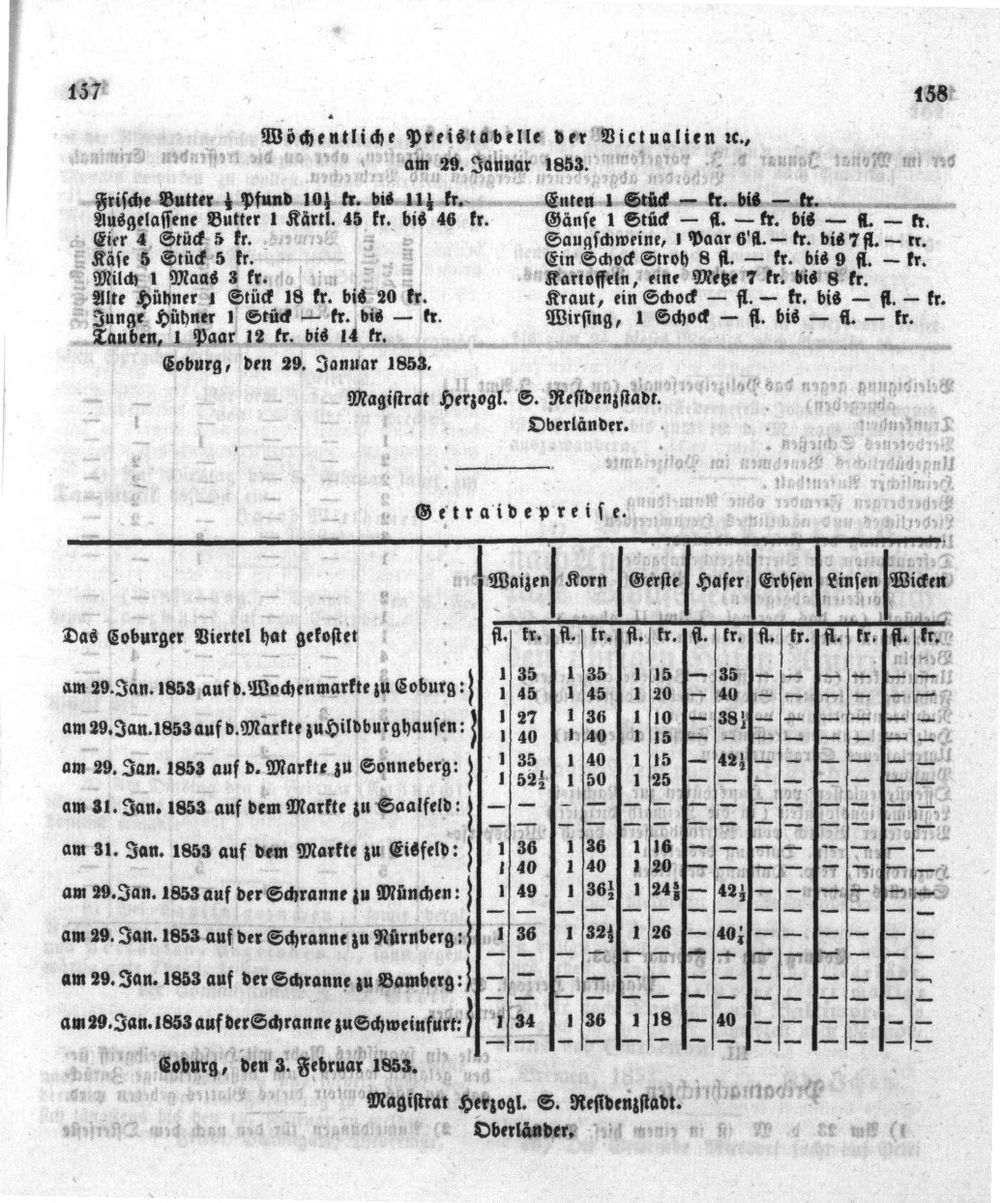 157
158
Wöchentliche Preistabelle der Victualien ꝛc.,
am 29. Januar 1853.
Frische Butter ½ Pfund 10½ kr. bis 11½ kr.
Ausgelassene Butter 1 Kärtl. 45 kr. bis 46 kr.
Eier 4 Stück 5 kr.
Käse 5 Stück 5 kr.
Milch 1 Maas 3 kr.
Alte Hühner 1 Stück 18 kr. bis 20 kr.
Junge Hühner 1 Stück — kr. bis — kr.
Tauben, 1 Paar 12 kr. bis 14 kr.
Enten 1 Stück — kr. bis — kr.
Gänse 1 Stück — fl. — kr. bis — fl. — kr.
Saugschweine, 1 Paar 6 fl. — kr. bis 7 fl. — kr.
Ein Schock Stroh 8 fl. — kr. bis 9 fl. — kr.
Kartoffeln, eine Metze 7 kr. bis 8 kr.
Kraut, ein Schock — fl. — kr. bis — fl. — kr.
Wirsing, 1 Schock — fl. bis — fl. — kr.
Coburg, den 29. Januar 1853.
Magistrat Herzogl. S. Residenzstadt.
Oberländer.
Getraidepreise.
Waizen Korn Gerste Hafer Erbsen Linsen Wicken
Das Coburger Viertel hat gekostet fl. kr. fl. kr. fl. kr. fl. kr. fl. kr. fl. kr. fl. kr.
am 29. Jan. 1853 auf d. Wochenmarkte zu Coburg: 1 35 1 35 1 15 — 35 — — — — — —
1 45 1 45 1 20 — 40 — — — — — —
am 29. Jan. 1853 auf d. Markte zu Hildburghausen: 1 27 1 36 1 10 — 38½ — — — — — —
1 40 1 40 1 15 — — — — — — — —
am 29. Jan. 1853 auf d. Markte zu Sonneberg: 1 35 1 40 1 15 — 42½ — — — — — —
1 52½ 1 50 1 25 — — — — — — — —
am 31. Jan. 1853 auf dem Markte zu Saalfeld: — — — — — — — — — — — — — —
— — — — — — — — — — — — — —
am 31. Jan. 1853 auf dem Markte zu Eisfeld: 1 36 1 36 1 16 — — — — — — — —
1 40 1 40 1 20 — — — — — — — —
am 29. Jan. 1853 auf der Schranne zu München: 1 49 1 36½ 1 24⅝ — 42½ — — — — — —
— — — — — — — — — — — — — —
am 29. Jan. 1853 auf der Schranne zu Nürnberg: 1 36 1 32½ 1 26 — 40¼ — — — — — —
— — — — — — — — — — — — — —
am 29. Jan. 1853 auf der Schranne zu Bamberg: — — — — — — — — — — — — — —
— — — — — — — — — — — — — —
am 29. Jan. 1853 auf der Schranne zu Schweinfurt: 1 34 1 36 1 18 — 40 — — — — — —
— — — — — — — — — — — — — —
Coburg, den 3. Februar 1853.
Magistrat Herzogl. S. Residenzstadt.
Oberländer.